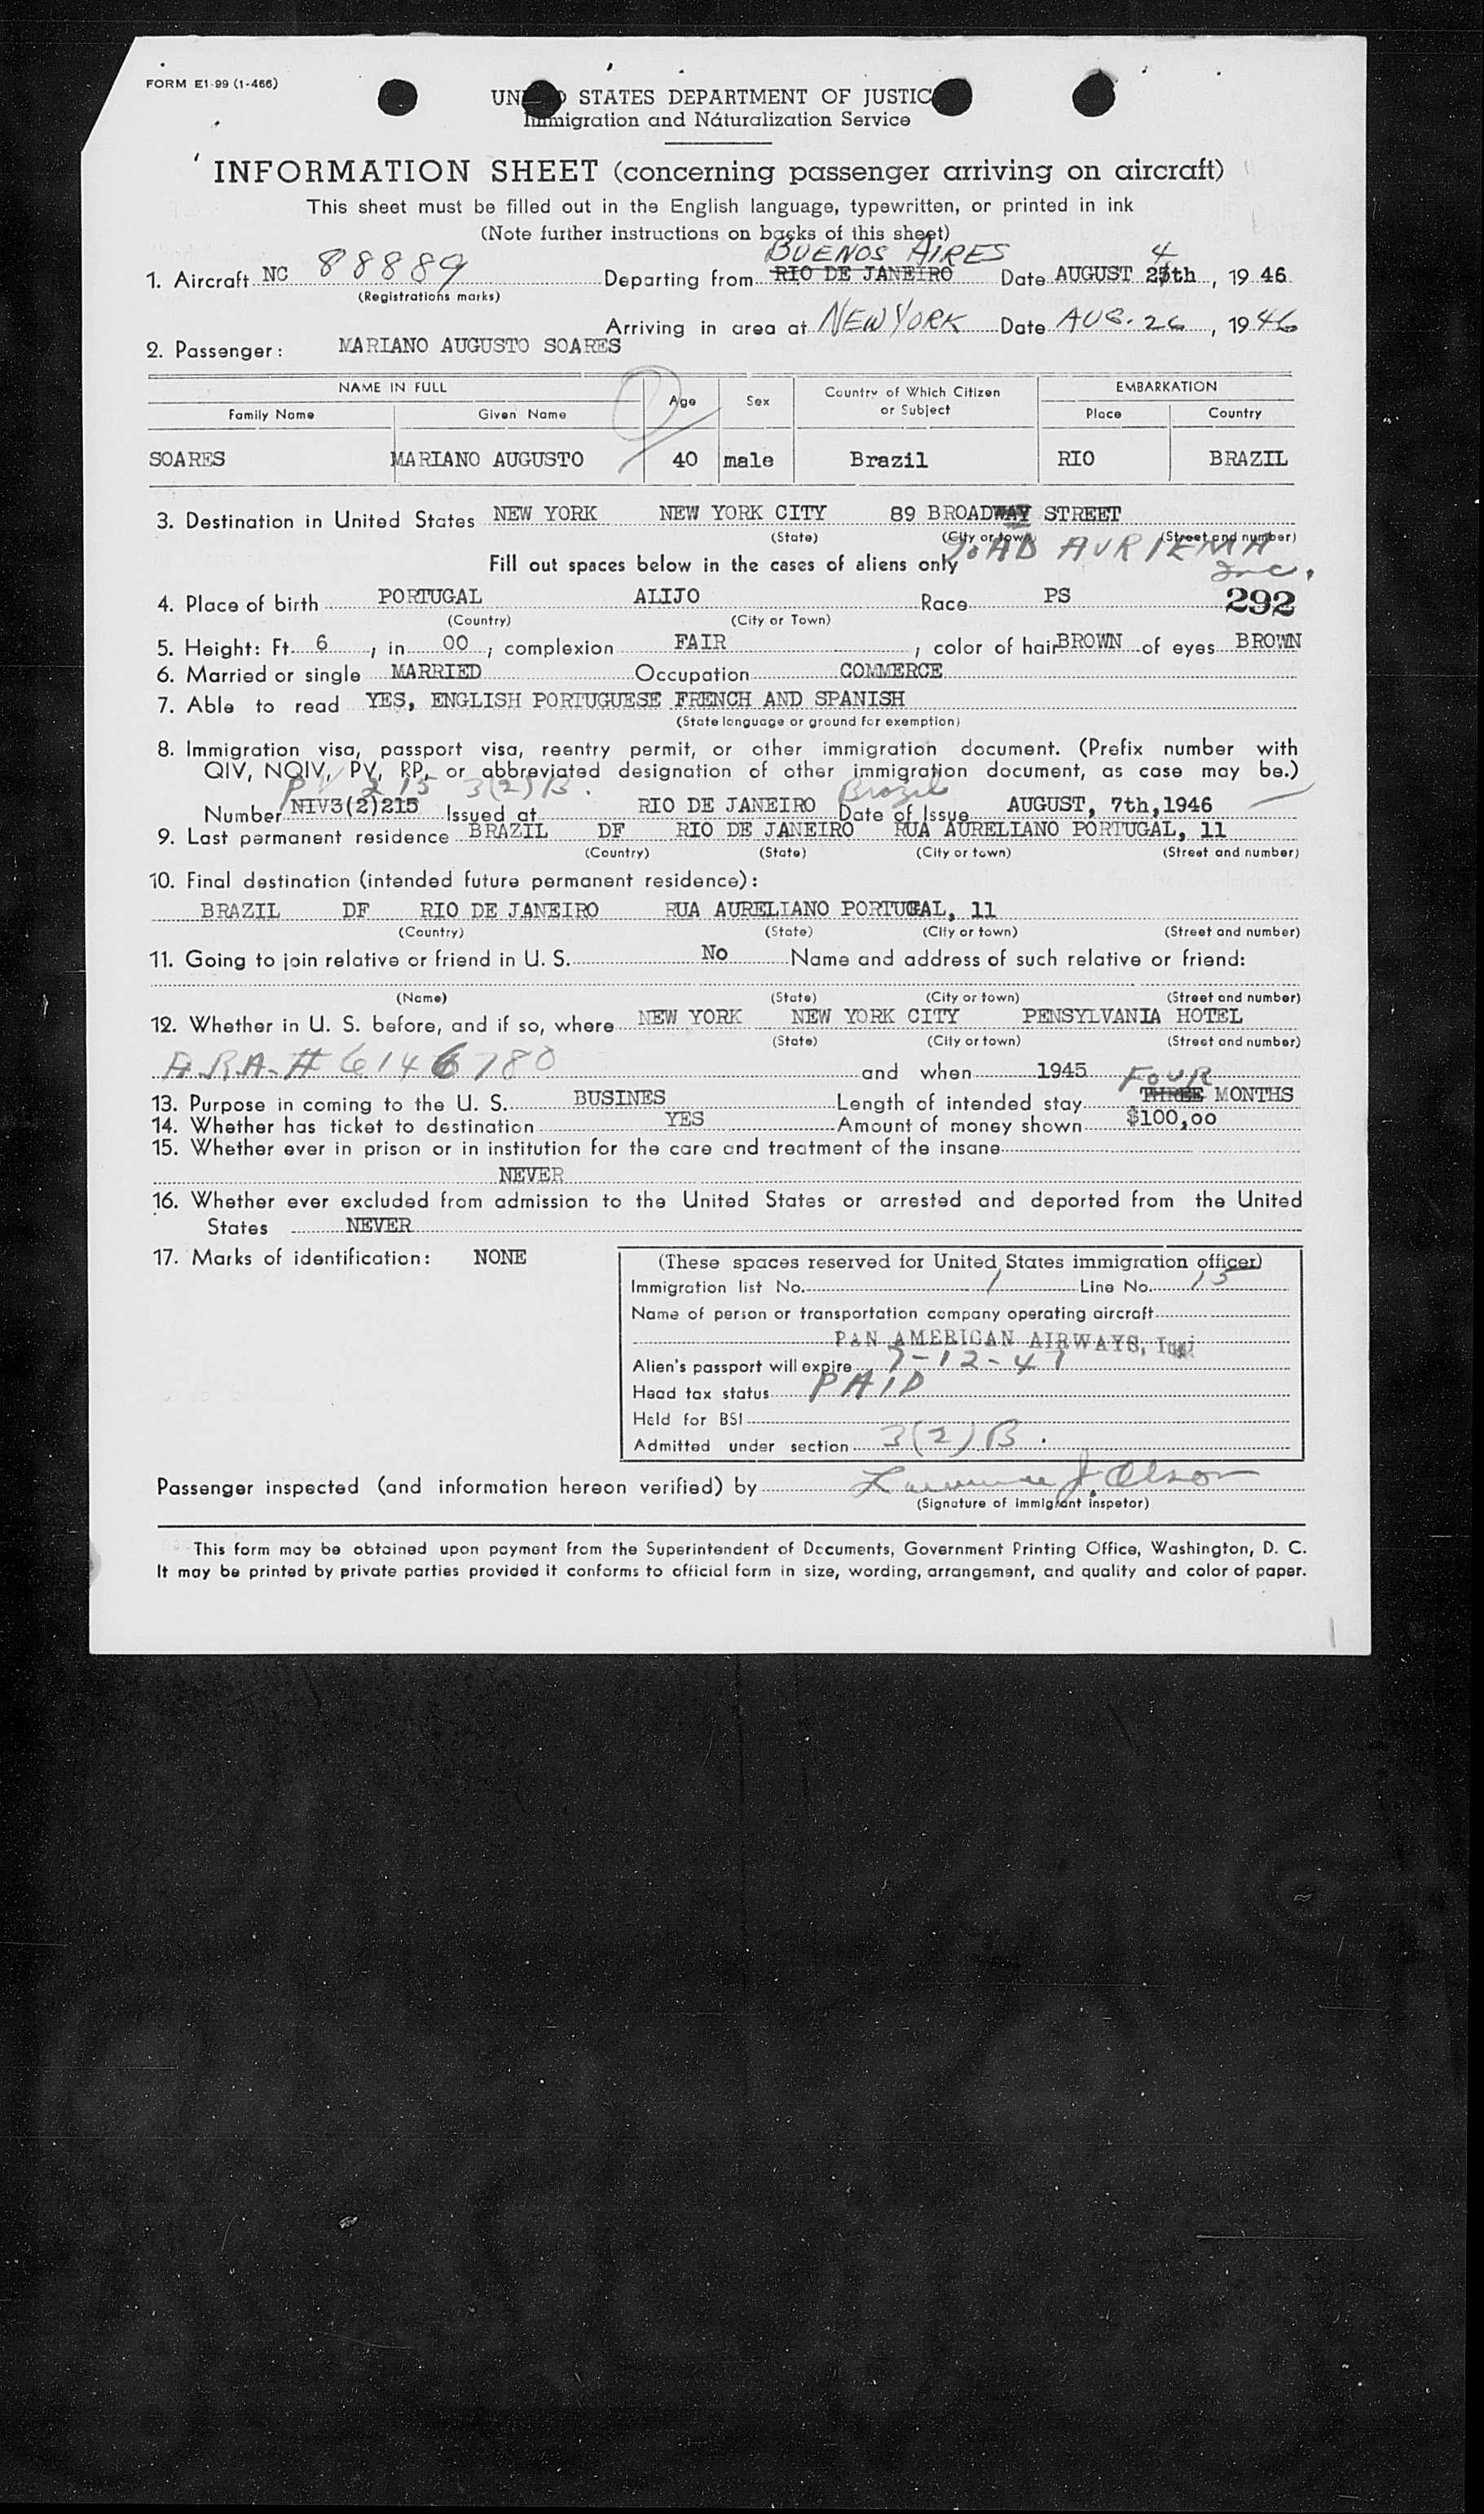 FORM E1-99 (1-466)
UNITED STATES DEPARTMENT OF JUSTICE
Immigration and Naturalization Service
INFORMATION SHEET (concerning passenger arriving on aircraft)
This sheet must be filled out in the English language, typewritten, or printed in ink
(Note further instructions on backs of this sheet)
BUENOS AIRES 4
1. Aircraft NC 88889 Departing from RIO DE JANEIRO Date AUGUST 25th, 19 46
(Registrations marks)
Arriving in area at NEW YORK Date AUG. 26, 1946
2. Passenger: MARIANO AUGUSTO SOARES
NAME IN FULL Age Sex Country of Which Citizen or Subject EMBARKATION
Family Name Given Name Place Country
SOARES MARIANO AUGUSTO 40 male Brazil RIO BRAZIL
3. Destination in United States NEW YORK NEW YORK CITY 89 BROADWAY STREET
(State) (City or town) (Street and number)
AD AURIEMA
Inc.
Fill out spaces below in the cases of aliens only
4. Place of birth PORTUGAL ALIJO Race PS 292
(Country) (City or Town)
5. Height: Ft. 6, in 00; complexion FAIR, color of hair BROWN of eyes BROWN
6. Married or single MARRIED Occupation COMMERCE
7. Able to read YES, ENGLISH PORTUGUESE FRENCH AND SPANISH
(State language or ground for exemption)
8. Immigration visa, passport visa, reentry permit, or other immigration document. (Prefix number with
QIV, NQIV, PV, RP, or abbreviated designation of other immigration document, as case may be.)
PV 215 3(2)B. Brazil
Number NIV3(2)215 Issued at RIO DE JANEIRO Date of Issue AUGUST, 7th,1946
9. Last permanent residence BRAZIL DF RIO DE JANEIRO RUA AURELIANO PORTUGAL, 11
(Country) (State) (City or town) (Street and number)
10. Final destination (intended future permanent residence):
BRAZIL DF RIO DE JANEIRO RUA AURELIANO PORTUGAL, 11
(Country) (State) (City or town) (Street and number)
11. Going to join relative or friend in U. S. No Name and address of such relative or friend:
(Name) (State) (City or town) (Street and number)
12. Whether in U. S. before, and if so, where NEW YORK NEW YORK CITY PENSYLVANIA HOTEL
(State) (City or town) (Street and number)
A.R.A. # 6146780 and when 1945
FOUR
13. Purpose in coming to the U. S. BUSINES Length of intended stay THREE MONTHS
14. Whether has ticket to destination YES Amount of money shown $100,00
15. Whether ever in prison or in institution for the care and treatment of the insane
NEVER
16. Whether ever excluded from admission to the United States or arrested and deported from the United
States NEVER
17. Marks of identification: NONE
(These spaces reserved for United States immigration officer)
Immigration list No. 1 Line No. 15
Name of person or transportation company operating aircraft
PAN AMERICAN AIRWAYS, Inc.
Alien's passport will expire 7-12-47
Head tax status PAID
Held for BSI
Admitted under section 3(2)B.
Passenger inspected (and information hereon verified) by Lawrence J. Olson
(Signature of immigrant inspetor)
This form may be obtained upon payment from the Superintendent of Documents, Government Printing Office, Washington, D. C.
It may be printed by private parties provided it conforms to official form in size, wording, arrangement, and quality and color of paper.